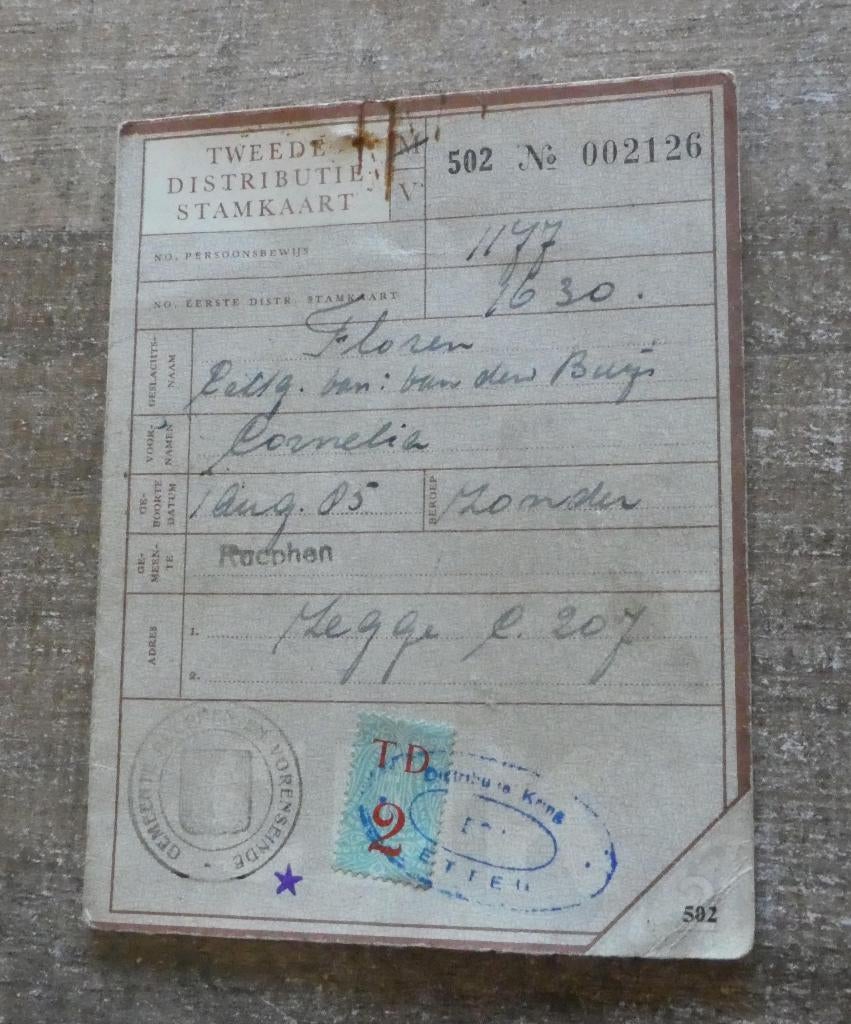 TWEEDE
DISTRIBUTIE
STAMKAART
M
V
502 № 002126
NO. PERSOONSBEWIJS 1177
NO. EERSTE DISTR. STAMKAART 1630.
GESLACHTS-
NAAM
Floren
van: van den Buijs
VOOR-
NAMEN
Cornelia
GE-
BOORTE
DATUM
1 Aug. 05
BEROEP
Zonder
GE-
MEEN-
TE
Rucphen
ADRES
1. Zegge C. 207
2.
GEMEENTE RUCPHEN EN VORENSEINDE
TD
2
Distributie Kring
ETTEN
502